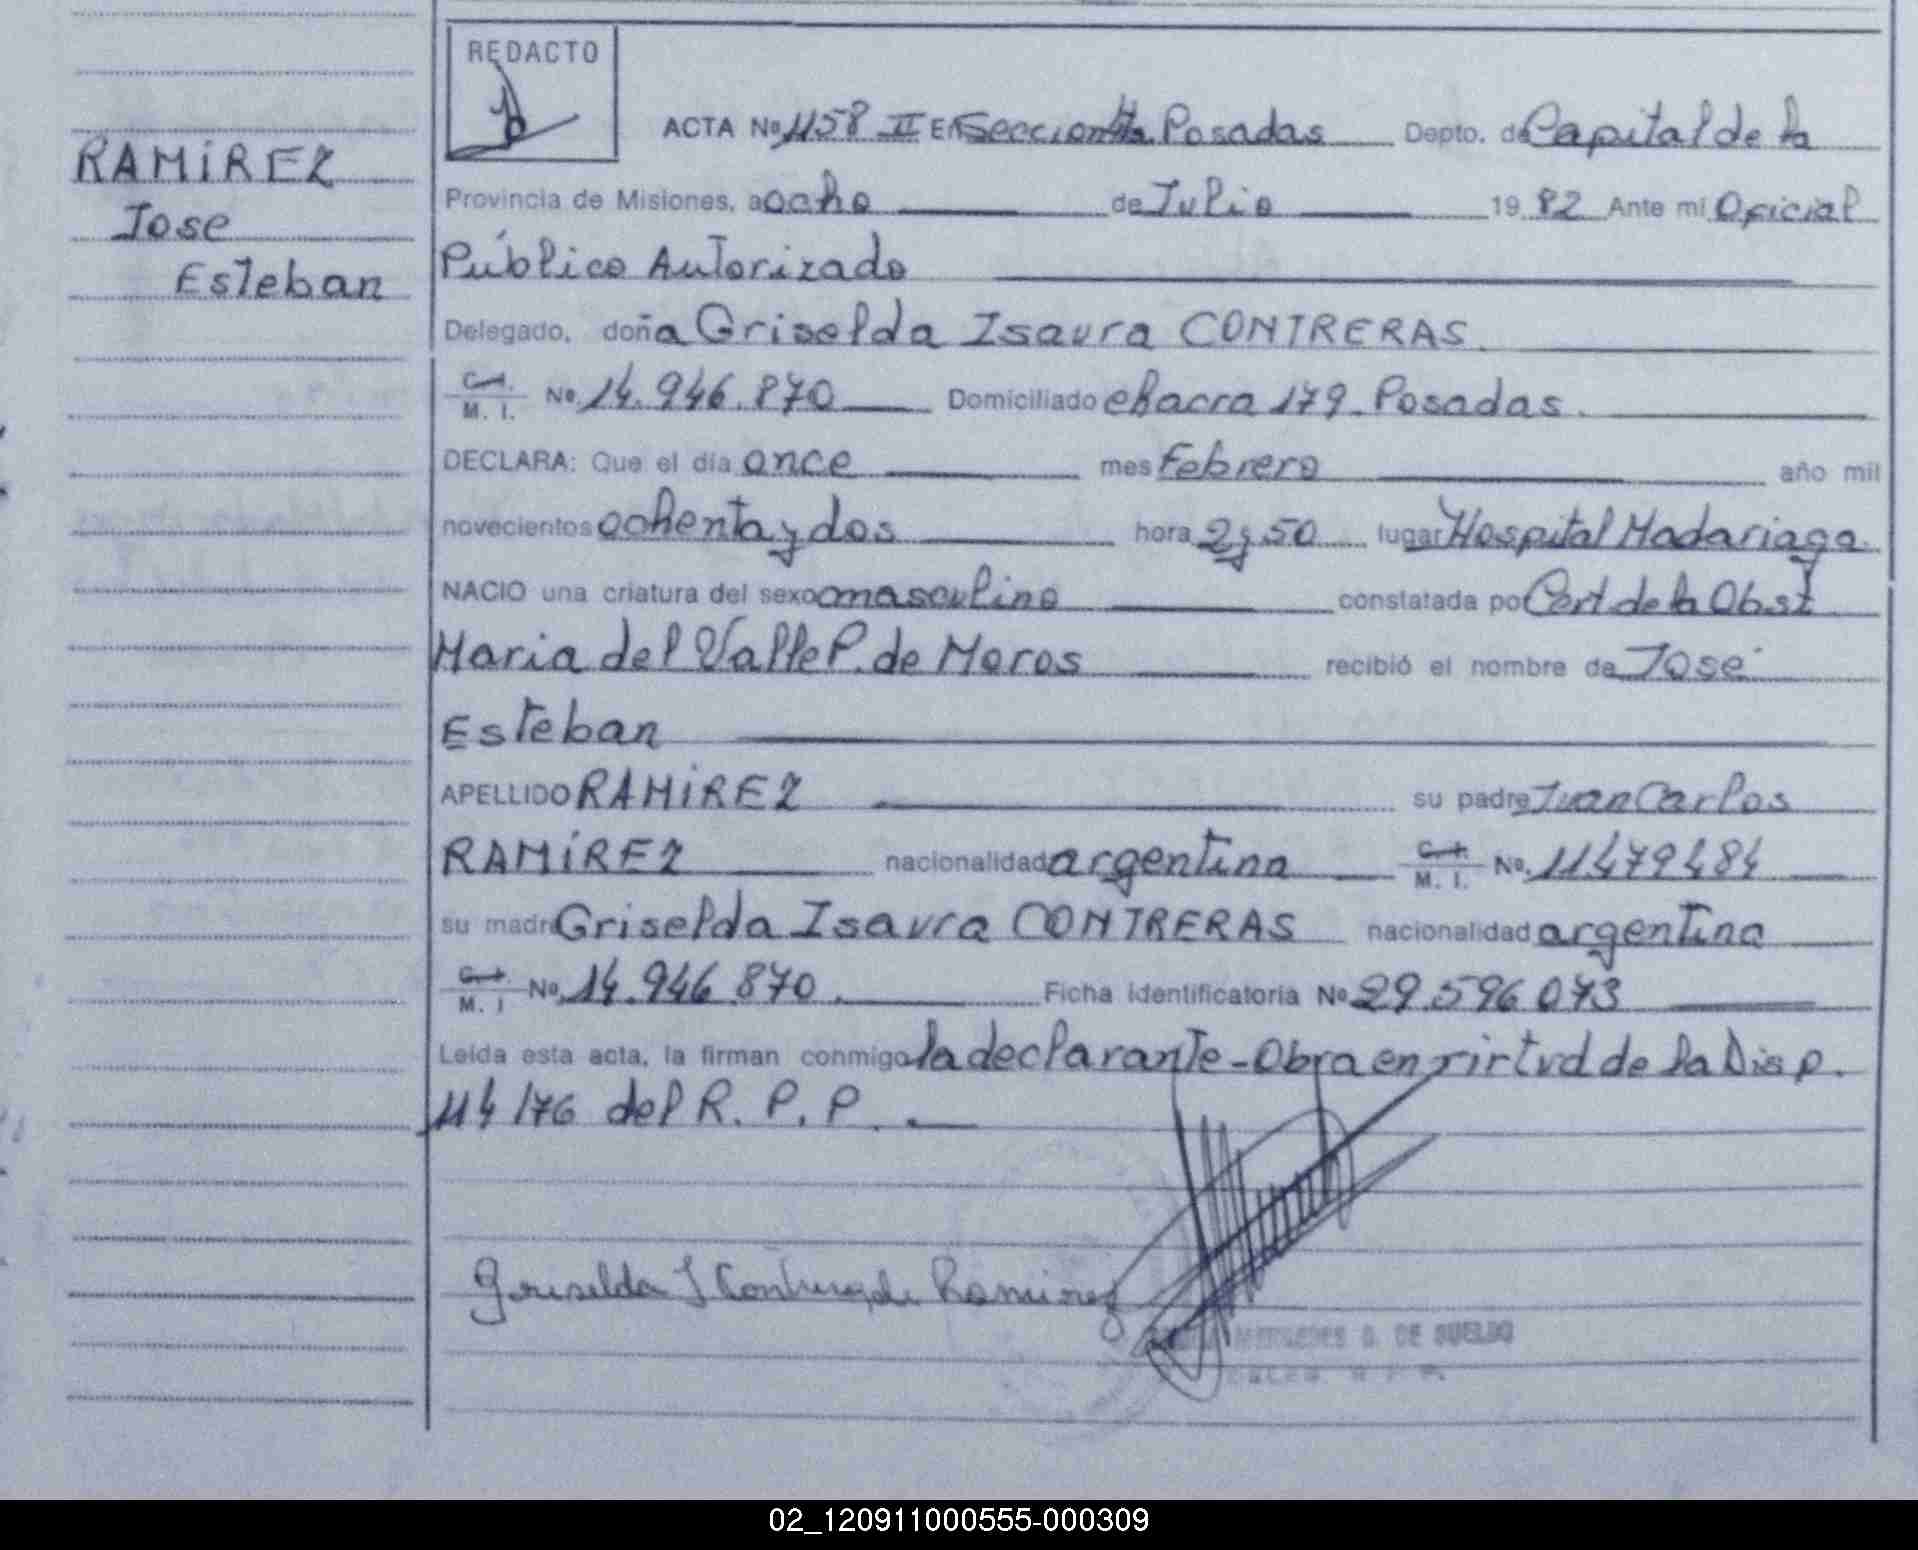 REDACTO
ACTA No 1158 II En Sección 4ta Posadas Depto. de Capital de la
RAMÍREZ
Provincia de Misiones, a ocho de Julio 19 82 Ante mi Oficial
Jose
Público Autorizado
Esteban
Delegado, doña Griselda Isaura CONTRERAS.
C.I. M. I. No 14.946.870 Domiciliado chacra 179. Posadas.
DECLARA: Que el día once mes Febrero año mil
novecientos ochenta y dos hora 2y50 lugar Hospital Madariaga.
NACIO una criatura del sexo masculino constatada por Cert. de la Obst
Maria del Valle P. de Moros recibió el nombre de José
Esteban
APELLIDO RAMÍREZ su padre Juan Carlos
RAMÍREZ nacionalidad argentina C.I. M. I. No. 11479484
su madre Griselda Isaura CONTRERAS nacionalidad argentina
C.I. M. I No 14.946.870. Ficha identificatoria No 29.596.073
Leída esta acta, la firman conmigo la declarante - Obra en virtud de la Disp.
114/76 del R. P. P.
Griselda I Contreras de Ramirez
MERCEDES G. DE SUELDO
02_120911000555-000309